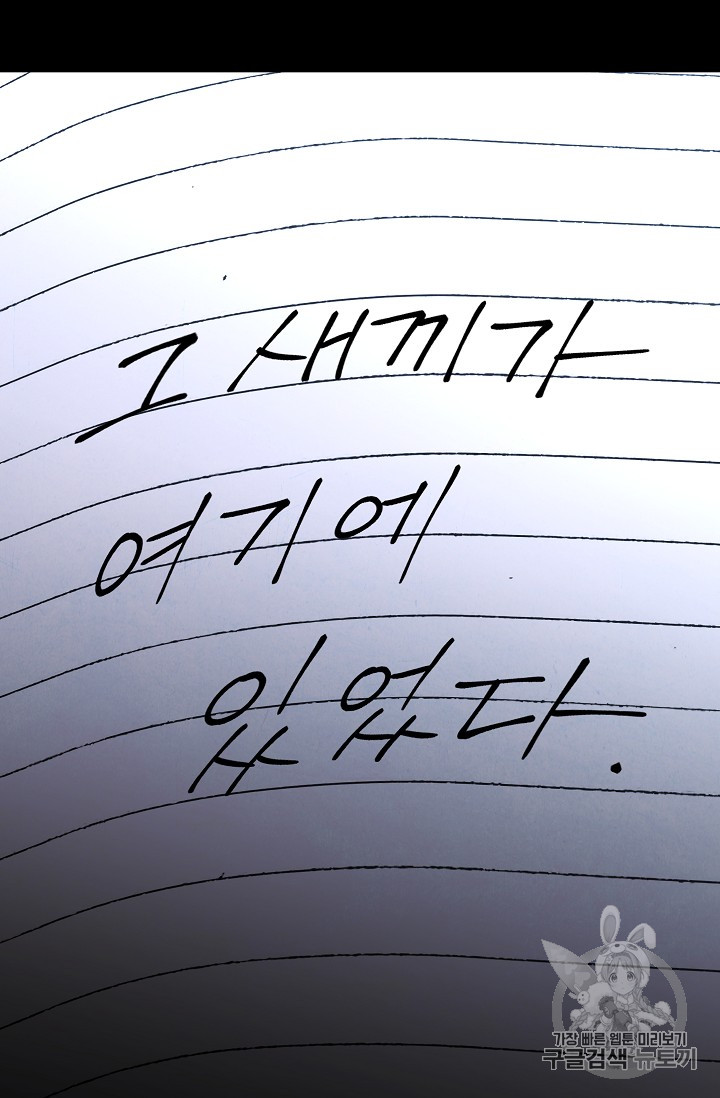 그 새끼가
여기에
있었다.
가장 빠른 웹툰 미리보기
구글검색 뉴토끼